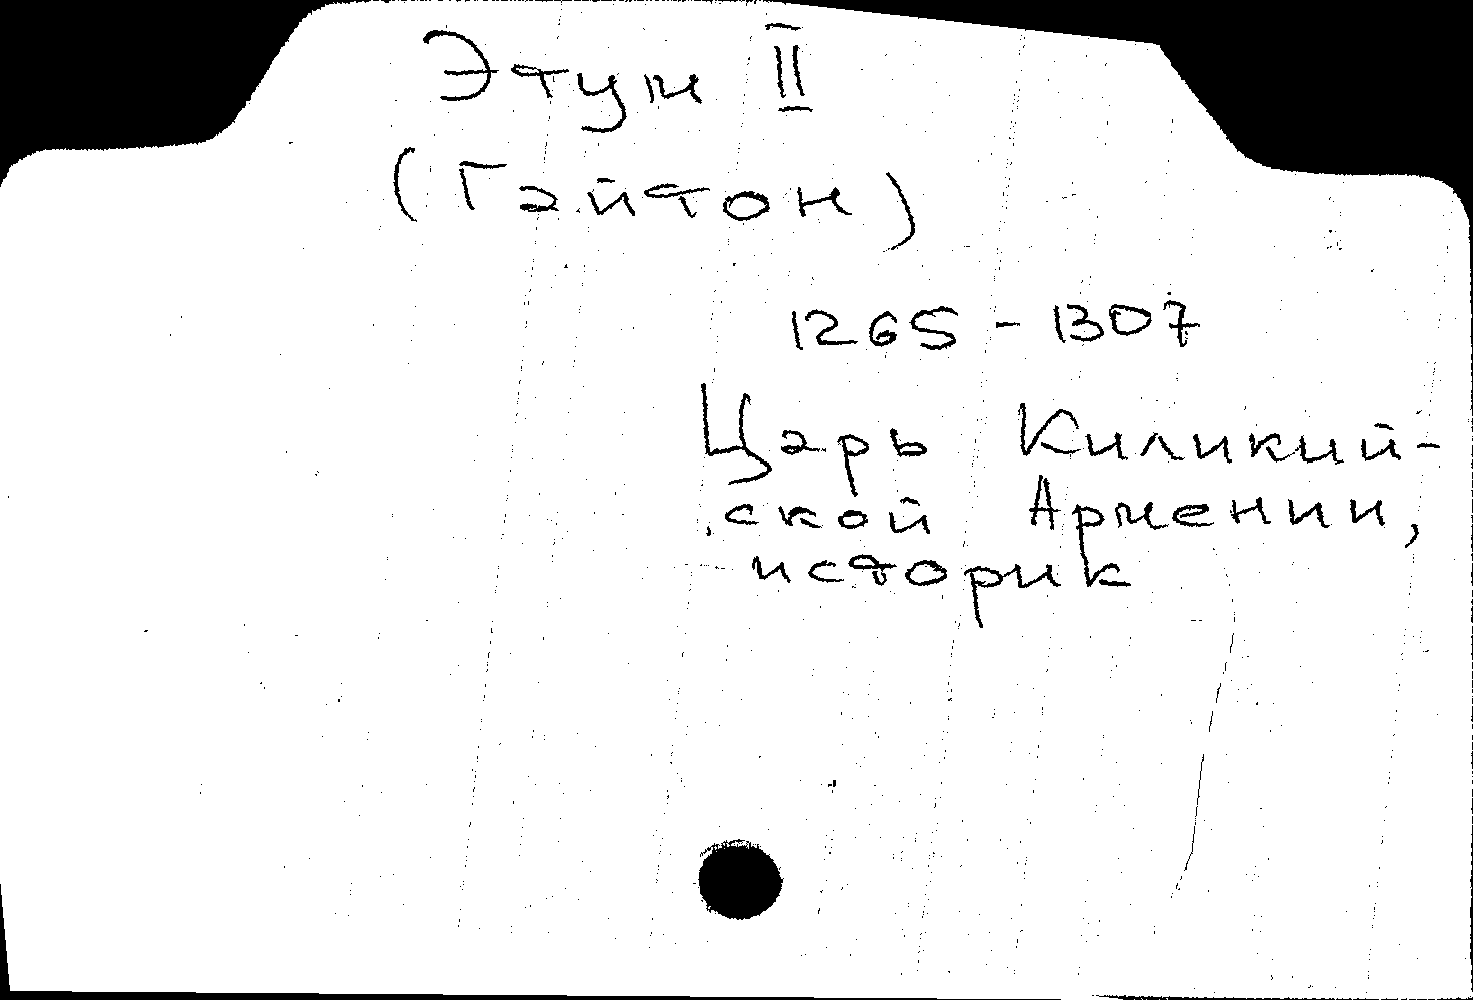 Этум II
(Гайтон)
1265 - 1307
Царь Киликий-
ской Армении,
историк